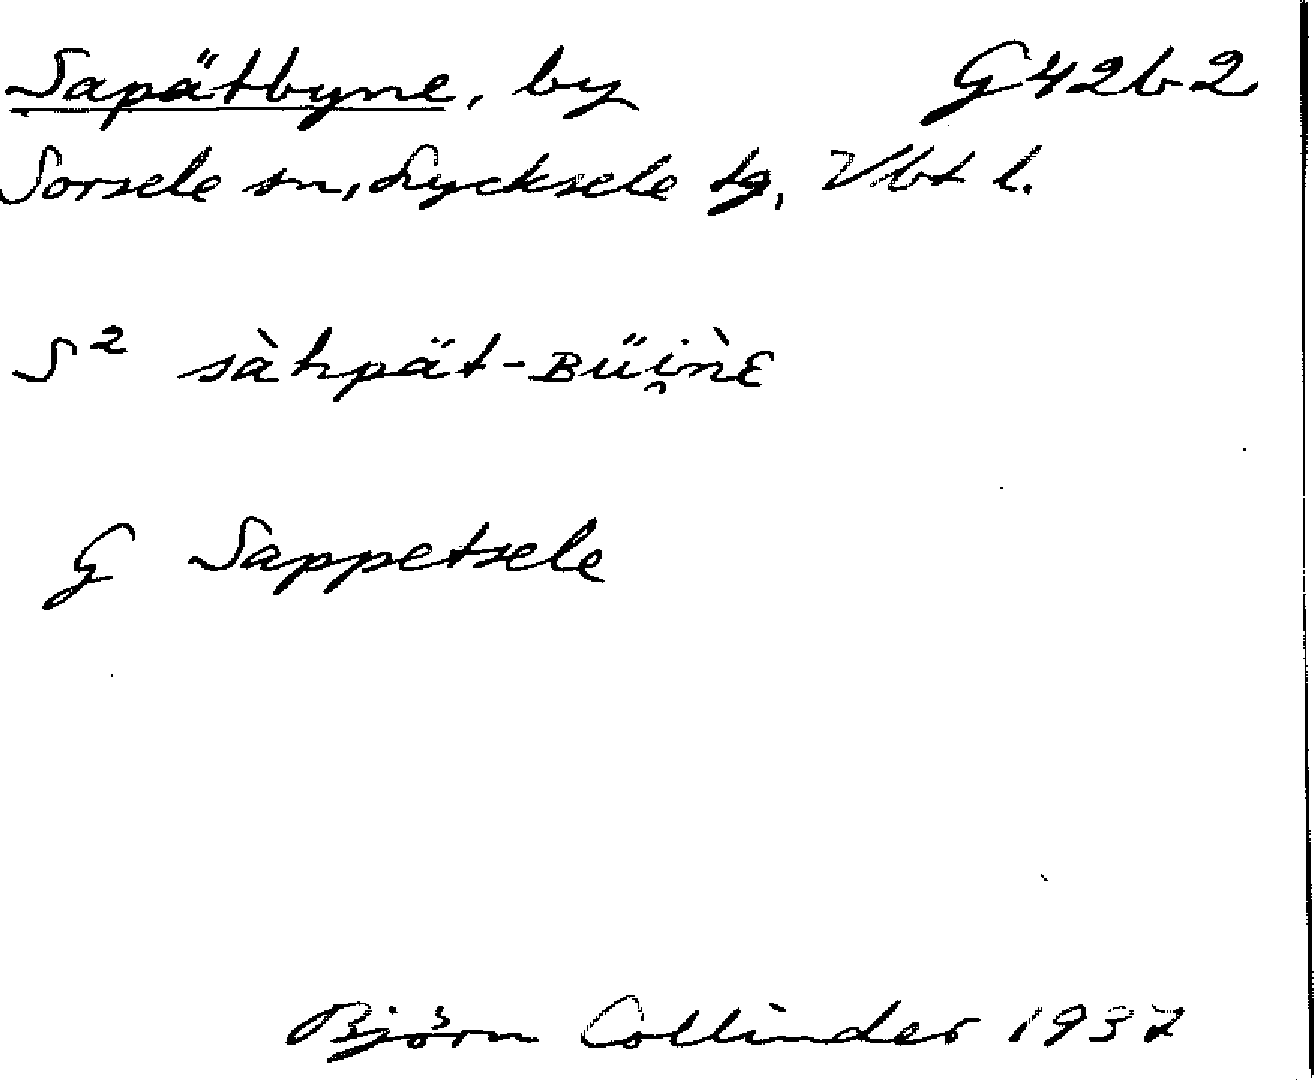 Sapätbyne, by G42b2
Sorsele sn, Lycksele tg, Vbt l.
S² sàhpät-ʙüi̯nὲ
G Sappetsele
Björn Collinder 1937